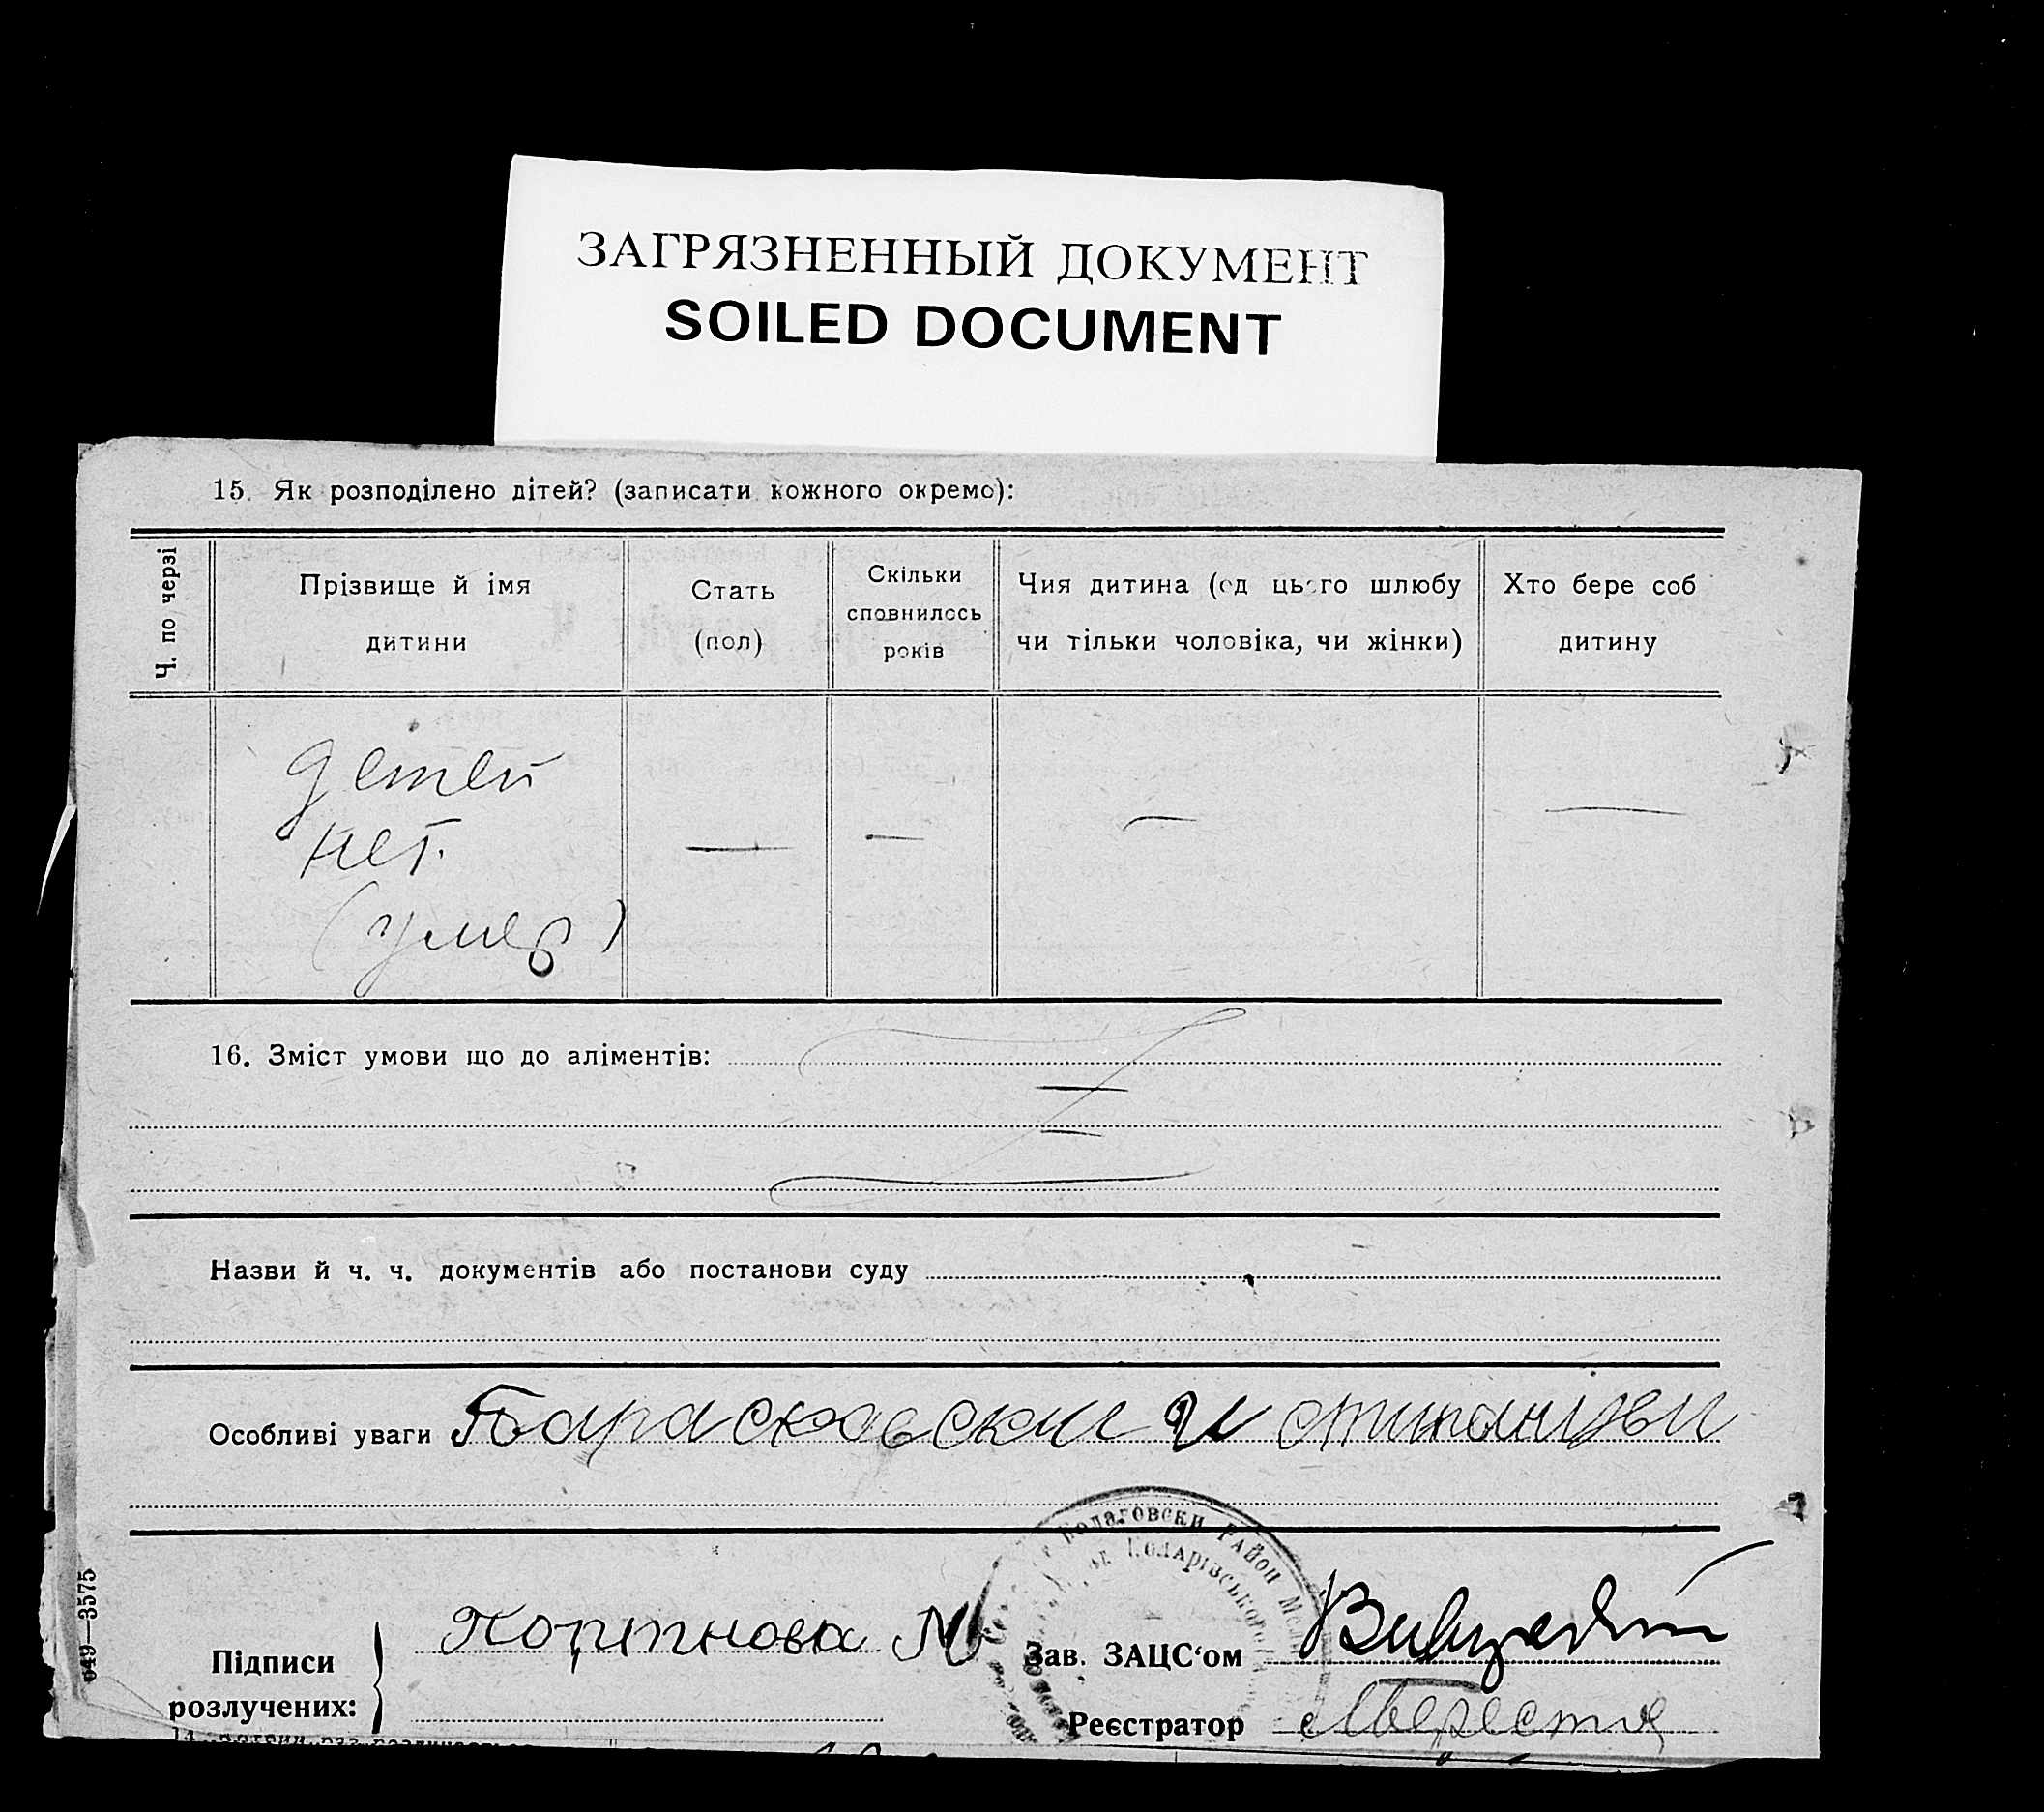 ЗАГРЯЗНЕННЫЙ ДОКУМЕНТ
SOILED DOCUMENT
15. Як розподілено дітей? (записати кожного окремо):
Ч. по черзі
Прізвище й імя
дитини
Стать
(пол)
Скільки
сповнилось
років
Чия дитина (од цього шлюбу
чи тільки чоловіка, чи жінки)
Хто бере соб
дитину
детей
нет.
(умер)
16. Зміст умови що до аліментів:
Назви й ч. ч. документів або постанови суду
Особливі уваги
649—3575
Підписи
розлучених:
Портнова М
Зав. ЗАЦС'ом
Реєстратор